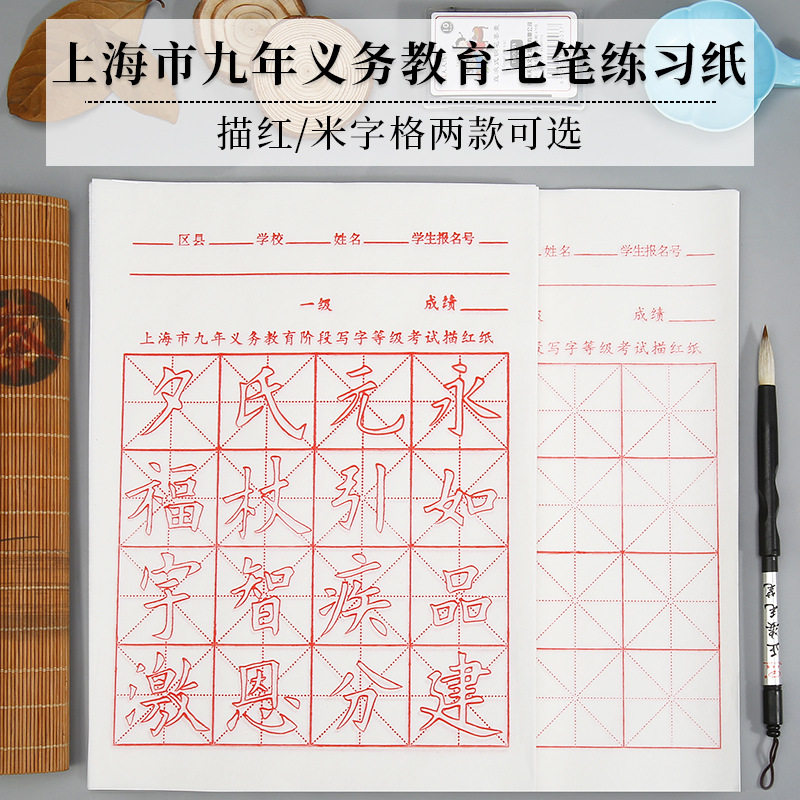 上海市九年义务教育毛笔练习纸
描红/米字格两款可选
____区县____学校____姓名____学生报名号____
一级 成绩____
上海市九年义务教育阶段写字等级考试描红纸
夕氏元永
福杖引如
字智疾品
激恩分建
姓名____学生报名号____
级 成绩____
写字等级考试描红纸